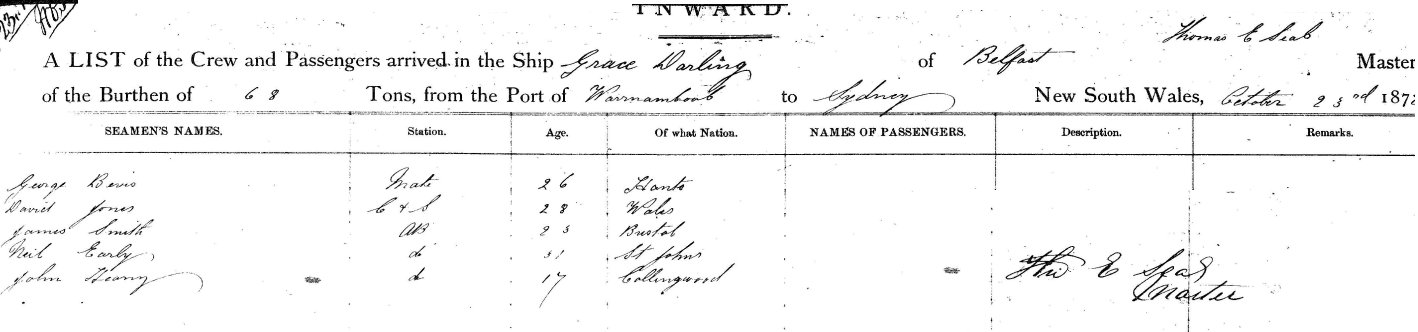 INWARD.
Thomas E Seal
A LIST of the Crew and Passengers arrived in the Ship Grace Darling of Belfast Master
of the Burthen of 68 Tons, from the Port of Warrnambool to Sydney New South Wales, October 23rd 187
SEAMEN'S NAMES. Station. Age. Of what Nation. NAMES OF PASSENGERS. Description. Remarks.
George Bevis Mate 26 Hants
David Jones C & S 28 Wales
James Smith AB 23 Bristol
Neil Early do 31 St Johns
John do 17 Collingwood
E Seal
Master